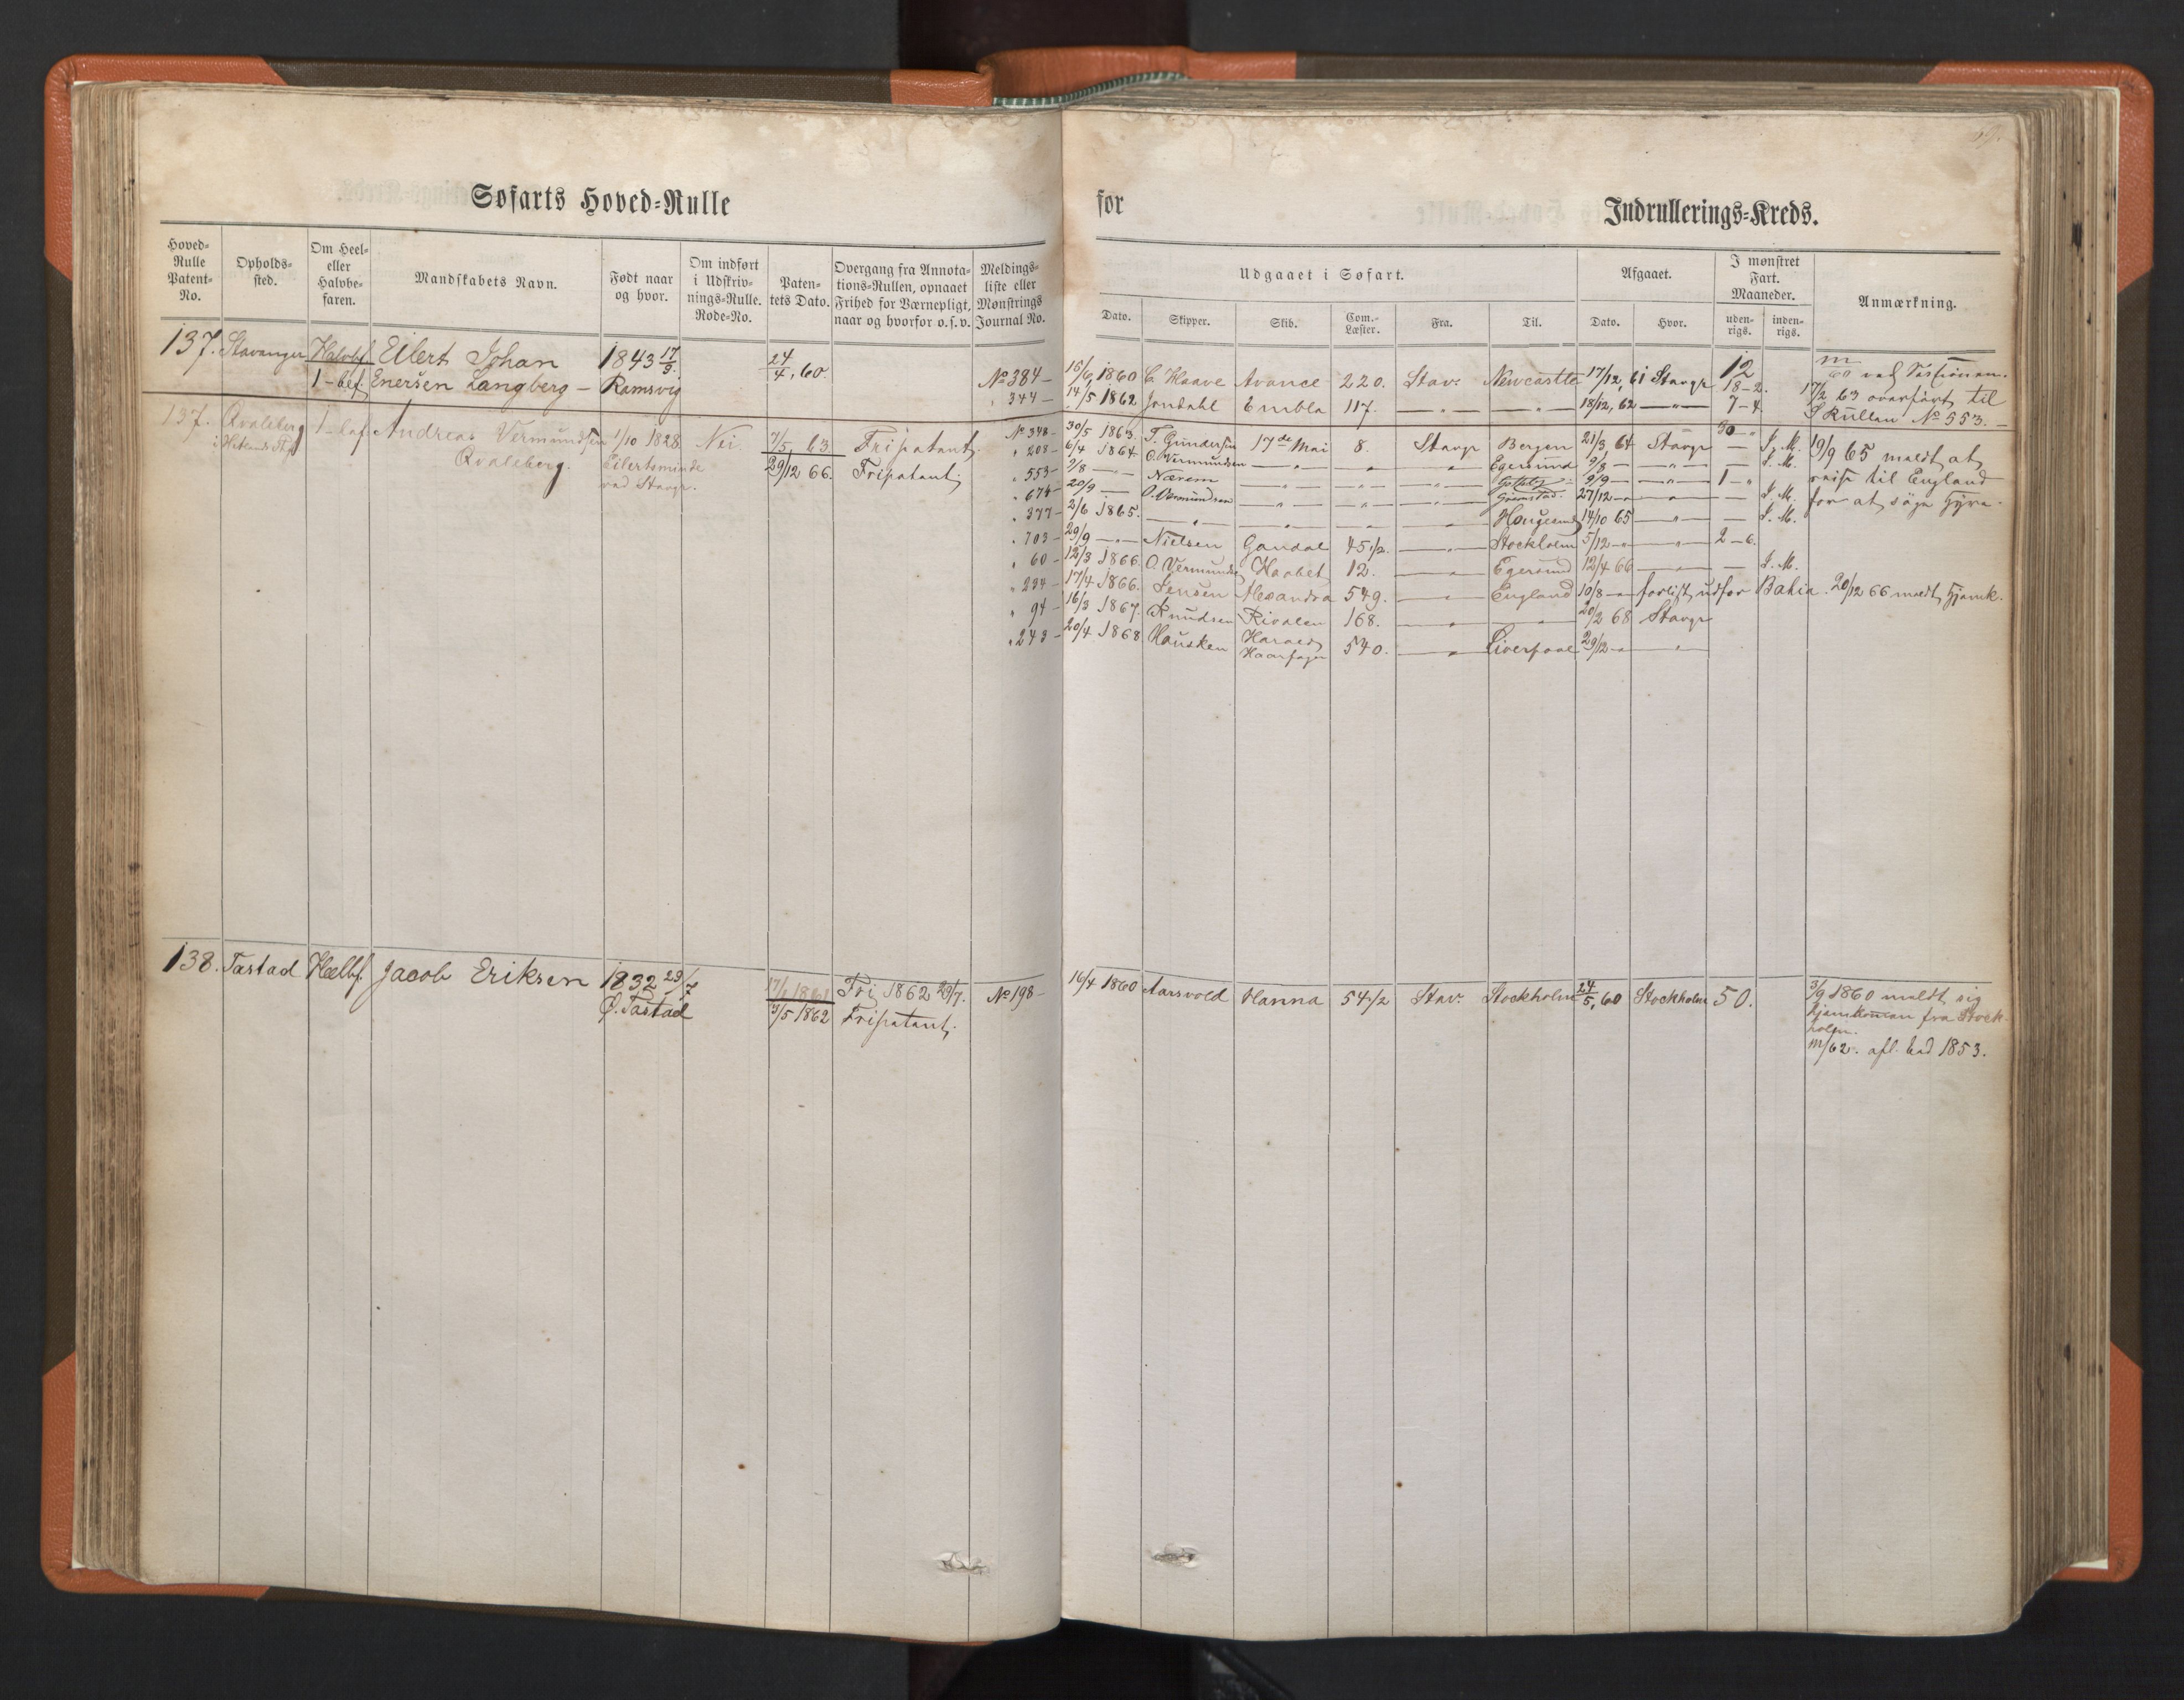 Søfarts Hoved-Rulle
for
Indrullerings-Kreds.
Hoved-Rulle Patent-No.
Opholds-sted.
Om Heel- eller Halvbe-faren.
Mandskabets Navn.
Født naar og hvor.
Om indført i Udskriv-nings-Rulle. Rode-No.
Paten-tets Dato.
Overgang fra Annota-tions-Rullen, opnaaet Frihed for Værnepligt, naar og hvorfor o.s.v.
Meldings-liste eller Mønstrings Journal No.
Udgaaet i Søfart.
Afgaaet.
I mønstret Fart. Maaneder.
Anmærkning.
Dato.
Skipper.
Skib.
Com.-Læster.
Fra.
Til.
Dato.
Hvor.
uden-rigs.
inden-rigs.
137. Stavanger Halvbf. Eilert Johan 1843 17/9. 24/4, 60.
1-bef. Enersen Langberg - Ramsvig
No 384 - 15/6, 1860 C. Haave Avance 220. Stav. Newcastle 17/12, 61 Stavgr 12
" 344 - 14/5 1862 Jondahl Embla 117. — " — — " — 18/12, 62 — " — 18-2.
7-4.
60 ved Sessionen.
17/2 63 overført til
S Rullen No 553. -
137. Qvaleberg 1-bef Andreas Vermundsen 1/10 1828 Nei. 7/5, 63. Fripatent.
i Hetlands Qvaleberg. Eilertsminde 29/12 66. Fripatent.
ved Stavgr.
No 348 - 30/5 1863. T. Gundersen 17de Mai 8. Stavgr Bergen 21/3, 64 Stavgr — S. M.
" 208 - 6/4 1864 O. Vermundsen — " — — " — " Egersund 9/8 — — " — — S. M.
" 553 - 9/8 — " — Nærem — " — — " — — " — 9/9 — — " — 1 - "
" 674 - 20/9 — O. Vermundsen — " — — " — — " — Grimstad. 27/12 - " — " — S. M.
" 377 - 2/6 1865. — " — — " — — " — — " — Haugesund 14/10 65 — " — — S. M.
" 703 - 29/9 — " — Nielsen Gandal 45 1/2. — " — Stockholm 5/12 - " — " — 2 - 6.
" 60 - 12/3 1866. O. Vermundsen Haabet 12. — " — Egersund 12/4 66 — " — — S. M.
" 234 - 17/4 1866. Jensen Alexandra 549. — " — England 10/8 - " forlist udfor Bahia. 20/12 66 meldt hjemk.
" 94 - 16/3 1867. Knudsen Rivalen 168. — " — — " — 20/2 68 Stavgr
" 243 - 20/4 1868 Hausken Harald Haarfager 540. — " — Liverpool 29/12 - " — " —
19/9 65 meldt at
reise til England
for at søge Hyre.
138. Tastad Heelbf. Jacob Eriksen 1832 29/7 17/6 1861 Fri 1862 29/7.
Ø. Tastad 3/5 1862 Fripatent.
No 198 - 16/4 1860 Aarsvold Hanna 54 1/2 Stav. Stockholm 24/5, 60 Stockholm 50.
3/9 1860 meldt sig
hjemkommen fra Stock-
holm.
m/62. afl. Ed 1853.